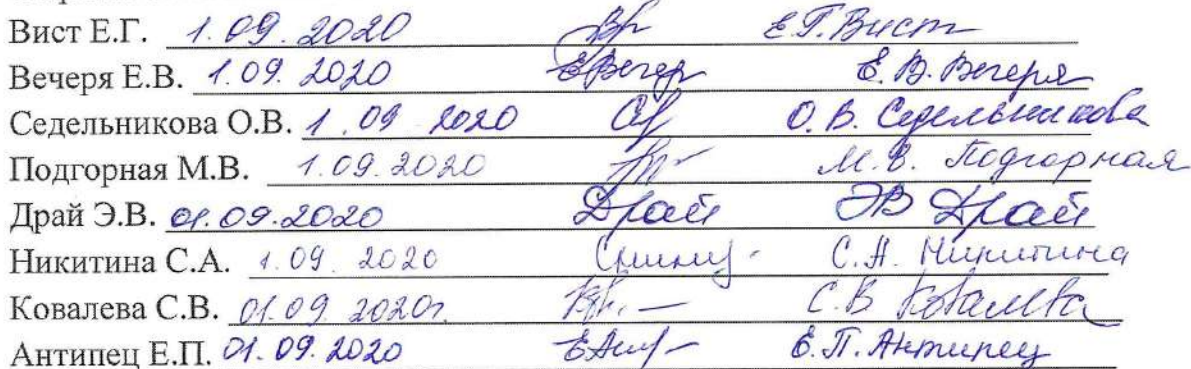 Вист Е.Г. 1.09.2020 Е.Г.Вист
Вечеря Е.В. 1.09.2020 ЕВечер Е.В.Вечеря
Седельникова О.В. 1.09 2020 О.В. Седельникова
Подгорная М.В. 1.09.2020 М.В. Подгорная
Драй Э.В. 01.09.2020 Драй ЭВ Драй
Никитина С.А. 1.09. 2020 С.А. Никитина
Ковалева С.В. 01.09.2020г. С.В Ковалева
Антипец Е.П. 01.09.2020 Е.П.Антипец